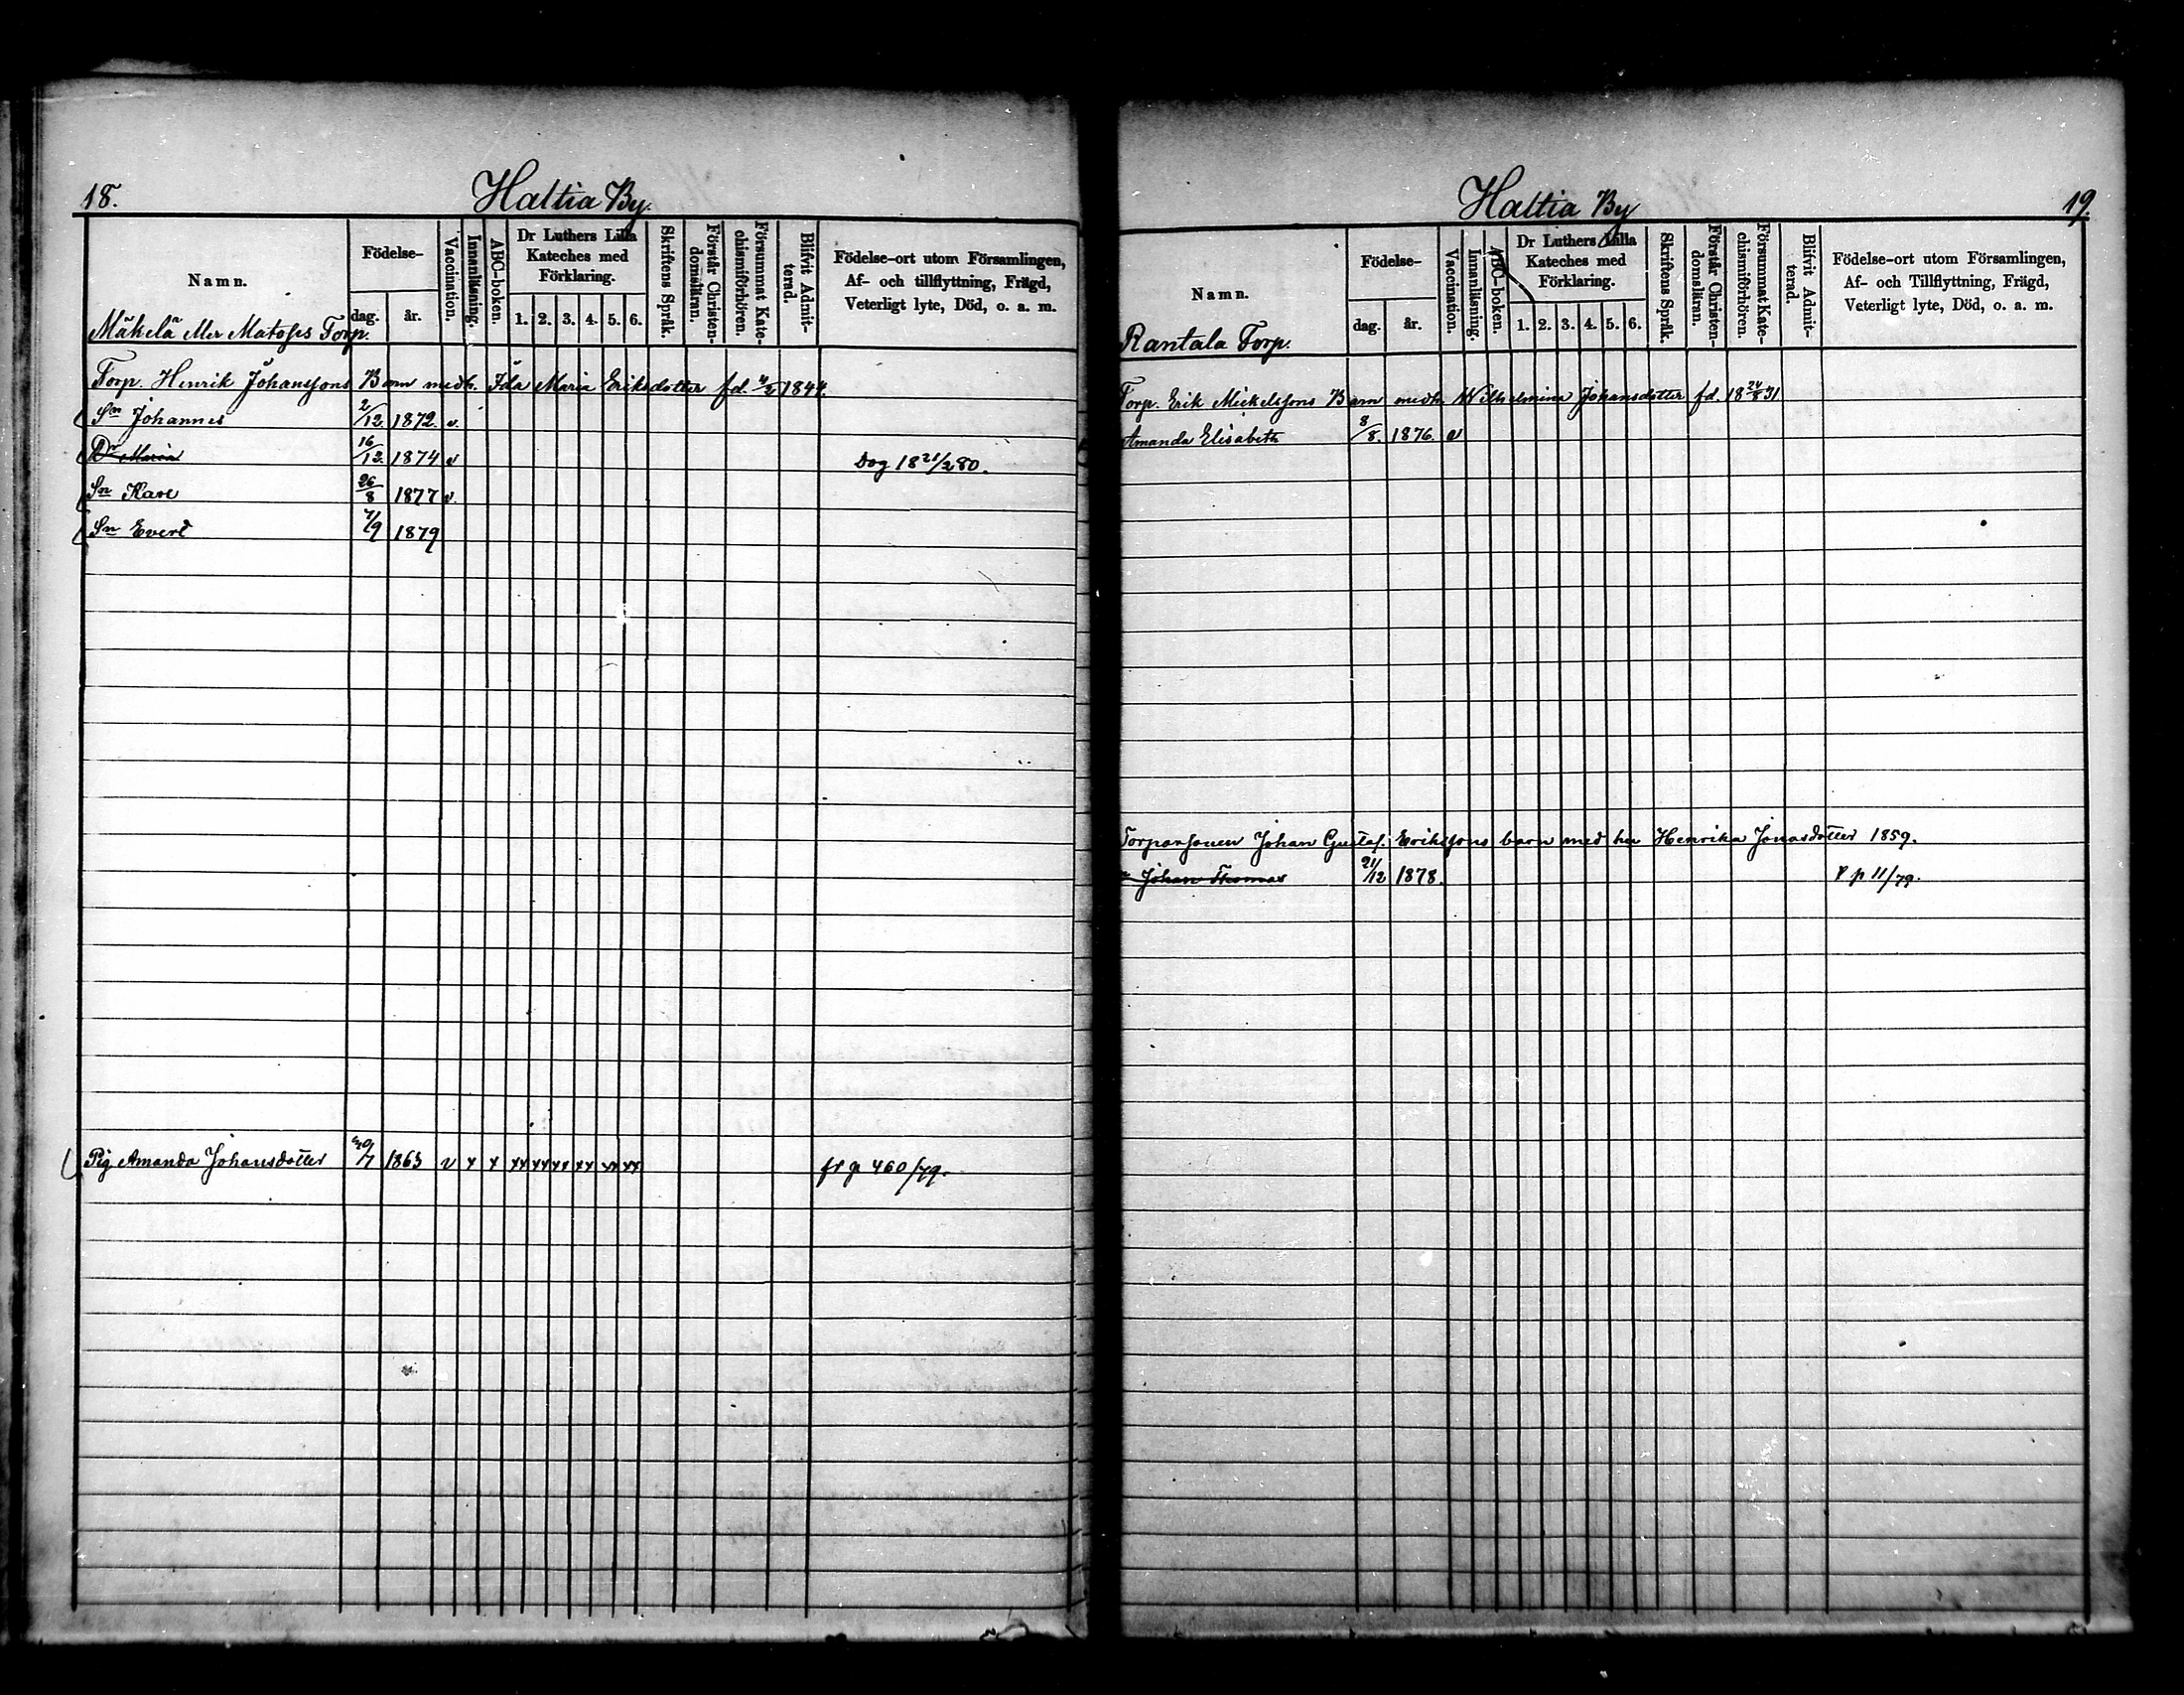 18.
Haltia By
Namn.
Födelse-
dag.
år.
Vaccination.
Innanläsning.
ABC-boken.
Dr Luthers Lilla
Kateches med
Förklaring.
1. 2. 3. 4. 5. 6.
Skriftens Språk.
Förstår Christen-
domsläran.
Försummat Kate-
chismiförhören.
Blifvit Admit-
terad.
Födelse-ort utom Församlingen,
Af- och tillflyttning, Frägd,
Veterligt lyte, Död, o. a. m.
Mäkelä eller Torp.
Torp. Henrik Johanssons Barn medh. Ida Maria Eriksdotter fd. 1844.
Sn Johannes 2/12 1872. v.
Dr Maria 16/12. 1874 v Dog 18 21/2 80.
Sn Karl 26/8 1877 v.
Sn Evert 7/9 1879
Pig Amanda Johansdotter 1863 v x x xx xx xx xx xx xx fr p 460/79.
19.
Haltia By
Namn.
Födelse-
dag.
år.
Vaccination.
Innanläsning.
ABC-boken.
Dr Luthers Lilla
Kateches med
Förklaring.
1. 2. 3. 4. 5. 6.
Skriftens Språk.
Förstår Christen-
domsläran.
Försummat Kate-
chismiförhören.
Blifvit Admit-
terad.
Födelse-ort utom Församlingen,
Af- och Tillflyttning, Frägd,
Veterligt lyte, Död, o. a. m.
Rantala Torp.
Torp. Erik Mickelssons Barn medh. Wilhelmina Johansdotter fd. 18 24/8 31
Amanda Elisabeth 8/8. 1876. v
Torparsonen Johan Gustaf Erikssons barn med hu Henrika Jonasdotter 1859.
Johan Thomas 21/12 1878. p 11/79.